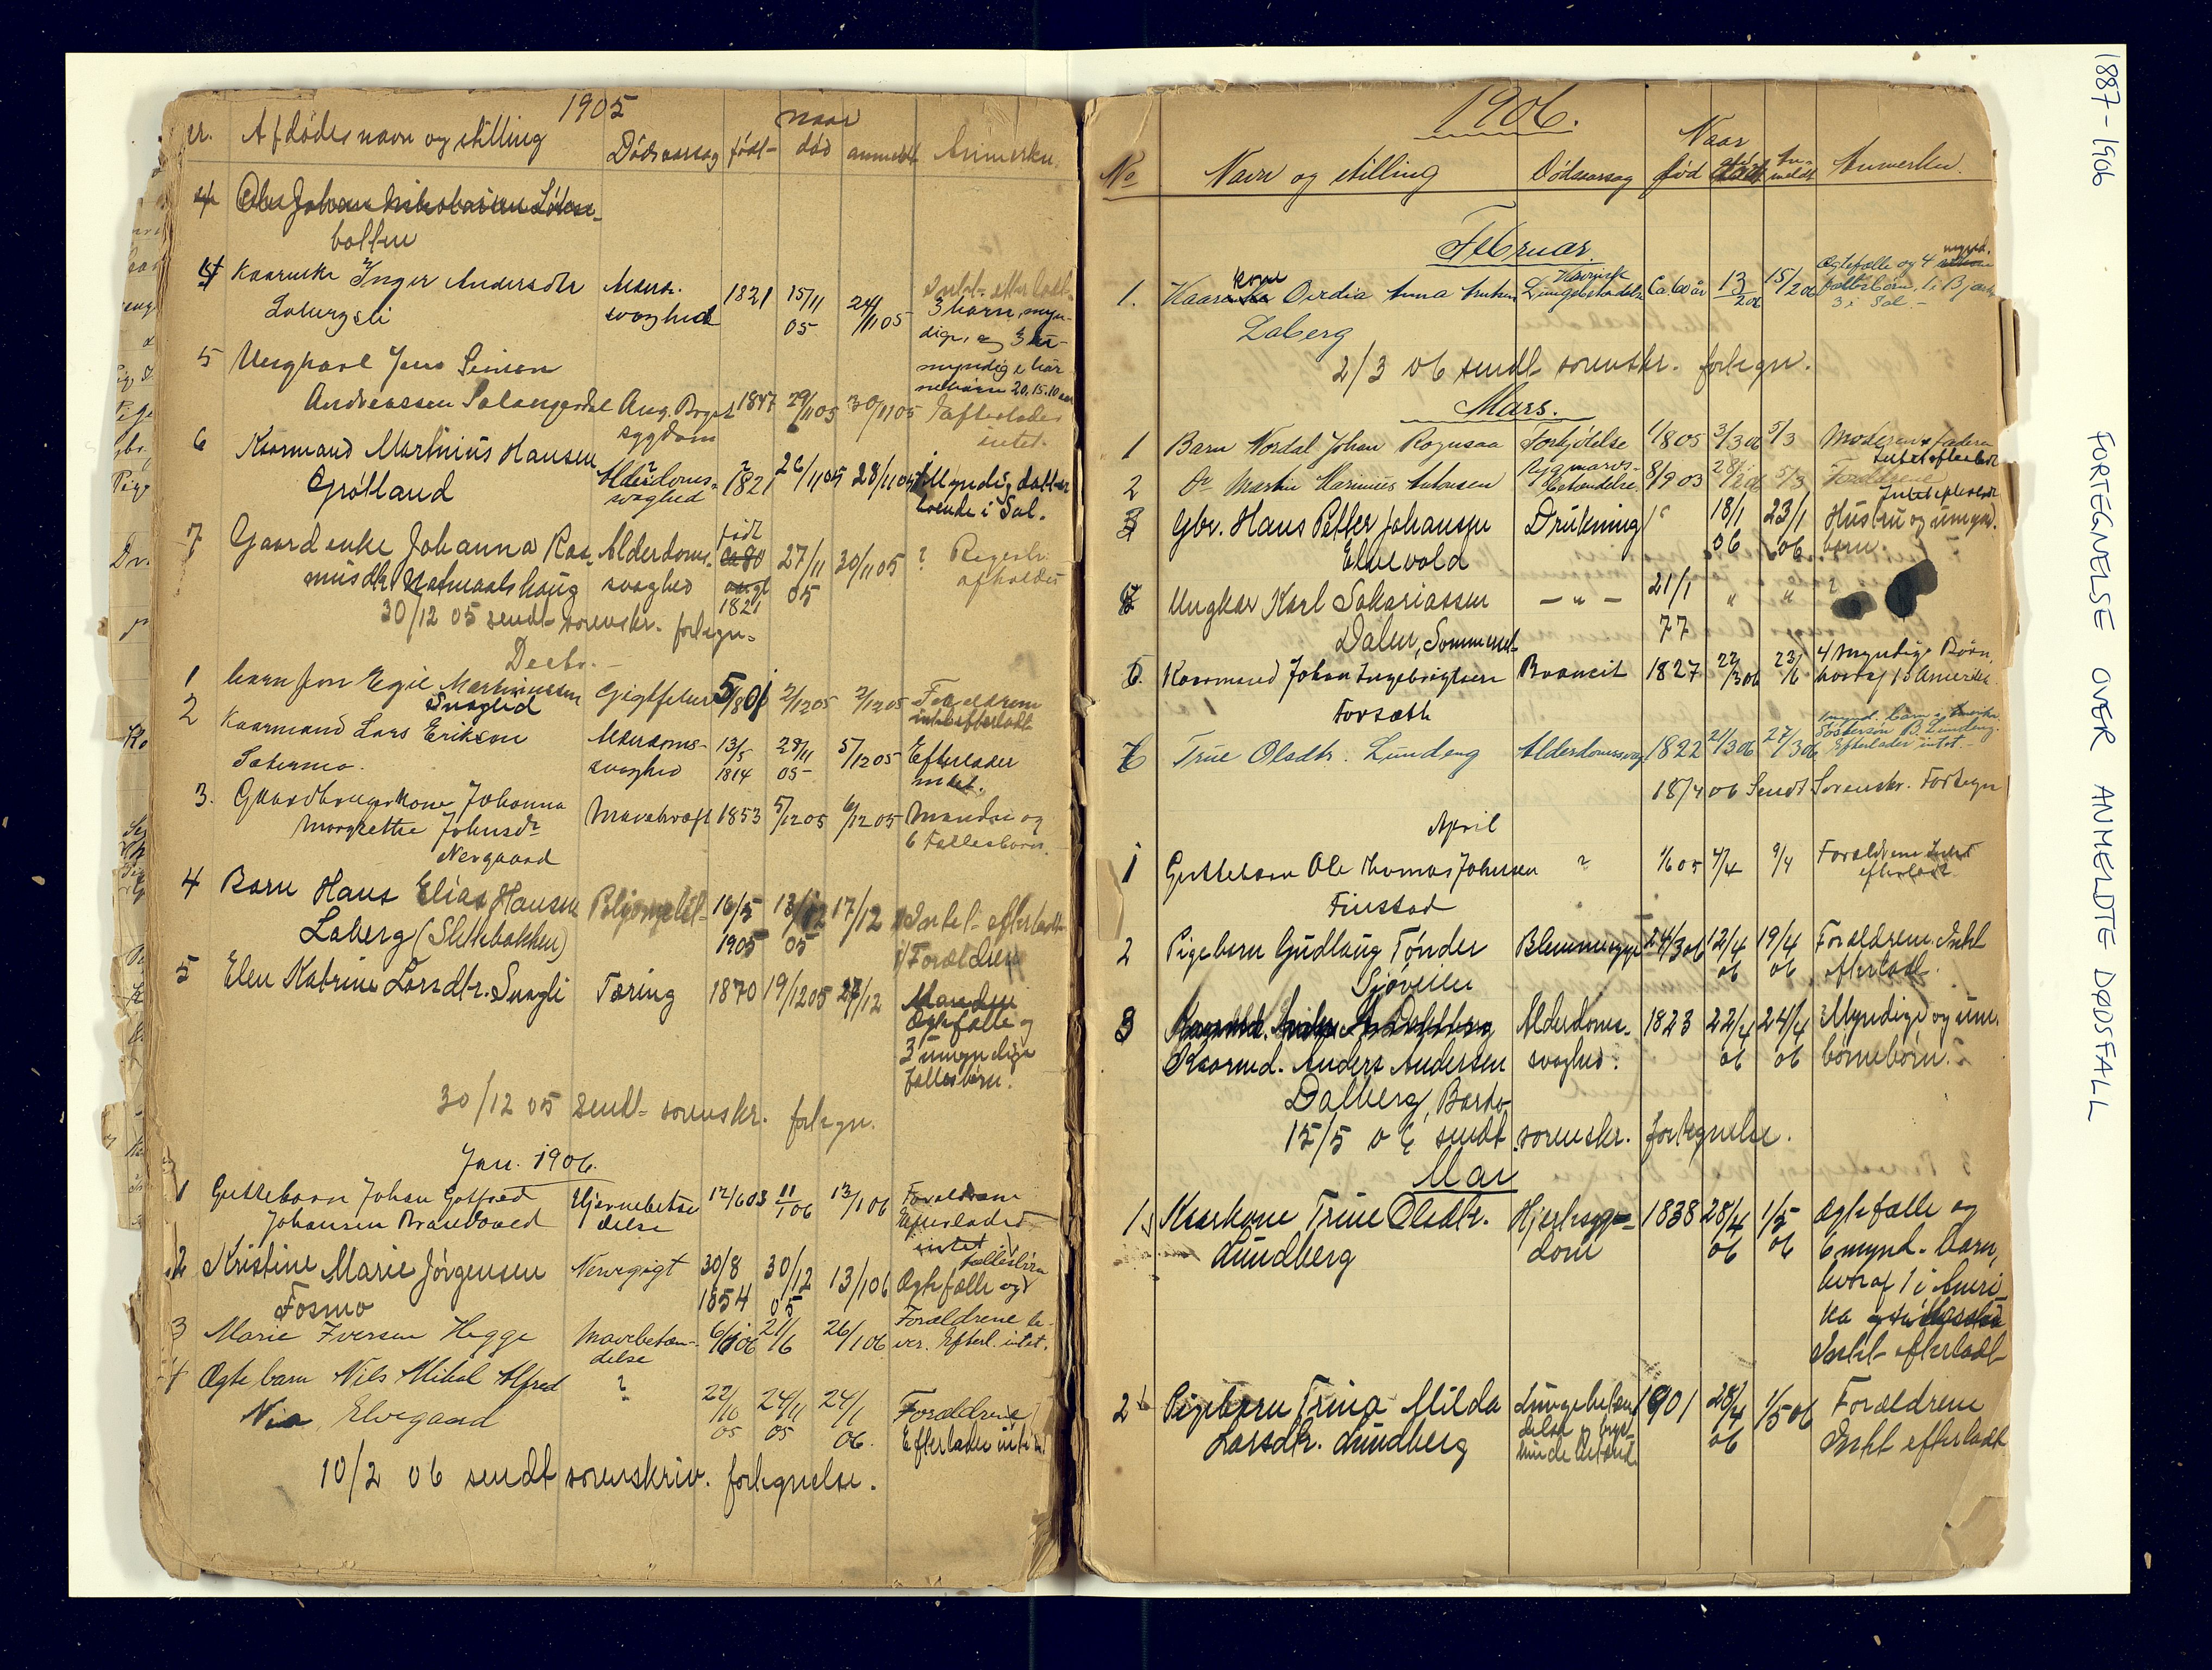 1905
nr. Afdødes navn og stilling Dødsaarsag født naar død anmeldt Anmerkn.
4 Ole Johan Nikolaisen
bakken
4 Kaarenke Inger Andersdtr Alderd. 1821 15/11 24/11 05 Intet efterladt.
Labergsli svaghed 05 3 børn, myn-
dige, og 3 u-
myndige bar
nebørn 20, 15, 10 aar
5 Ungkarl Jens Simon
Andreassen Salangsdal Ang. Bryst 1847 29/11 05 30/11 05 Efterlader
sygdom intet.
6 Kaarmand Martinius Hansen Alderdoms- 1821 26/11 05 28/11 05 1 Myndig datter
Grøtland svaghed boende i Sal.
7 Gaardenke Johanna Ras- Alderdoms- født 27/11 30/11 05 ? Registr.
musdtr. svaghed ca 80 05 afholdes
1821
30/12 05 sendt sorenskr. fortegn.
Decbr.
1 barn Jon Egil Martinussen Gigtfeber 5/8 01 2/12 05 2/12 05 Forældrene
Snaglid intet efterladt
2 Kaarmand Lars Erikson Alderdoms- 13/5 28/11 5/12 05 Efterlader
Sætermo. svaghed 1814 05 intet.
3. Gaardbrugerkone Johanna Mavekræft 1853 5/12 05 6/12 05 Manden og
Margrethe Johnsdr 6 Fællesbørn.
Nergaard
4 Barn Hans Elias Hansen 16/5 13/12 17/12 Intet efterladt
Laberg (Slettebakken) 1905 05 Forældrene
5 Elen Katrine Larsdtr. Snagli Tæring 1870 19/12 05 27/12 Manden
Ægtefælle og
3 umyndige
fællesbørn.
30/12 05 sendt sorenskr. fortegn.
Jan. 1906.
1 Guttebarn Johan Gotfred Hjernebetæn 12/6 03 11/1 06 13/1 06 Forældrene
Johansen Brandvoed delse Efterlader
intet
2 Kristine Marie Jørgensen Nervegigt 30/8 30/12 13/1 06 Ægtefælle og fællesbørn
Fosmo 1854 05
3 Marie Iversen Hegge Mavebetæn- 6/1 06 21/1 6 26/1 06 Forældrene le-
delse ver. Efterl. intet.
4 Ægte barn Nils Mikal Alfred ? 22/10 24/11 24/1 Forældrene
Nia, Elvegaard 05 05 06. Efterlader intet
10/2 06 sendt sorenskriv. fortegnelse.
1906.
No Navn og stilling Dødsaarsag Naar fød død An- meldt Anmerkn.
Februar.
1. Kaarkone Ovidia Anna Antons Kronisk Lungebetændelse Ca. 60 år 13/2 06 15/2 06 Ægtefælle og 4 mynd.
Laberg fællesbørn, 1 i Bjark
3 i Sal.
2/3 06 sendt sorenskr. fortegn.
Mars.
1 Barn Nordal Johan Rognsaa Forkjølelse 1/8 05 3/3 06 5/3 Moderen & faderen
Intet efterladt
2 Do Martin Marinius Antonsen Rygmarvs- 8/9 03 28/2 06 5/3 Forældrene
betændelse Intet efterladt
3 Gbr. Hans Petter Johansen Drukning 18/1 23/1 Hustru og umynd.
Elvevold 06 06 børn.
4 Ungkar Karl Sakariassen — " — 21/1 " " ?
Dalen, Sommerset 77
5. Kaarmand Johan Ingebrigtsen Brancit 1827 22/3 06 23/6 4 myndige Børn,
Forsæth hvoraf 1 i Amerika
6 Trine Olsdtr. Lundeng Alderdomssvag. 1822 21/3 06 27/3 06 1 mynd. barn i Amerika.
Søstersøn B. Lundeng.
Efterlader intet.
18/4 06 Sendt Sorenskr. Fortegn
April
1 Guttebarn Ole Thomas Johnsen ? 1/6 05 4/4 9/4 Forældrene Intet
Finstad efterladt
2 Pigebarn Gudlaug Tønder Blemmesyge 24/3 06 12/4 19/4 Forældrene. Intet
Sjøveien 06 06 efterladt.
3 Kaarmd. Anders Andersen Alderdoms- 1823 22/4 24/4 3 Myndige og um.
Dalberg, Bardo svaghed. 06 06 børnebørn.
15/5 06 sendt sorenskr. fortegnelse.
Mai
1 Kaarkone Trine Olsdtr. Hjertesyg- 1838 28/4 1/5 Ægtefælle og
Lundberg dom 06 06 6 mynd. Barn,
hvoraf 1 i Ameri
ka
Intet efterladt
2 Pigebarn Trina Milda Lungebetæn 1901 28/4 1/5 06 Forældrene
Larsdtr. Lundberg delse og bryst- 06 Intet efterladt
hindebetænd.
1887-1906 FORTEGNELSE OVER ANMELDTE DØDSFALL